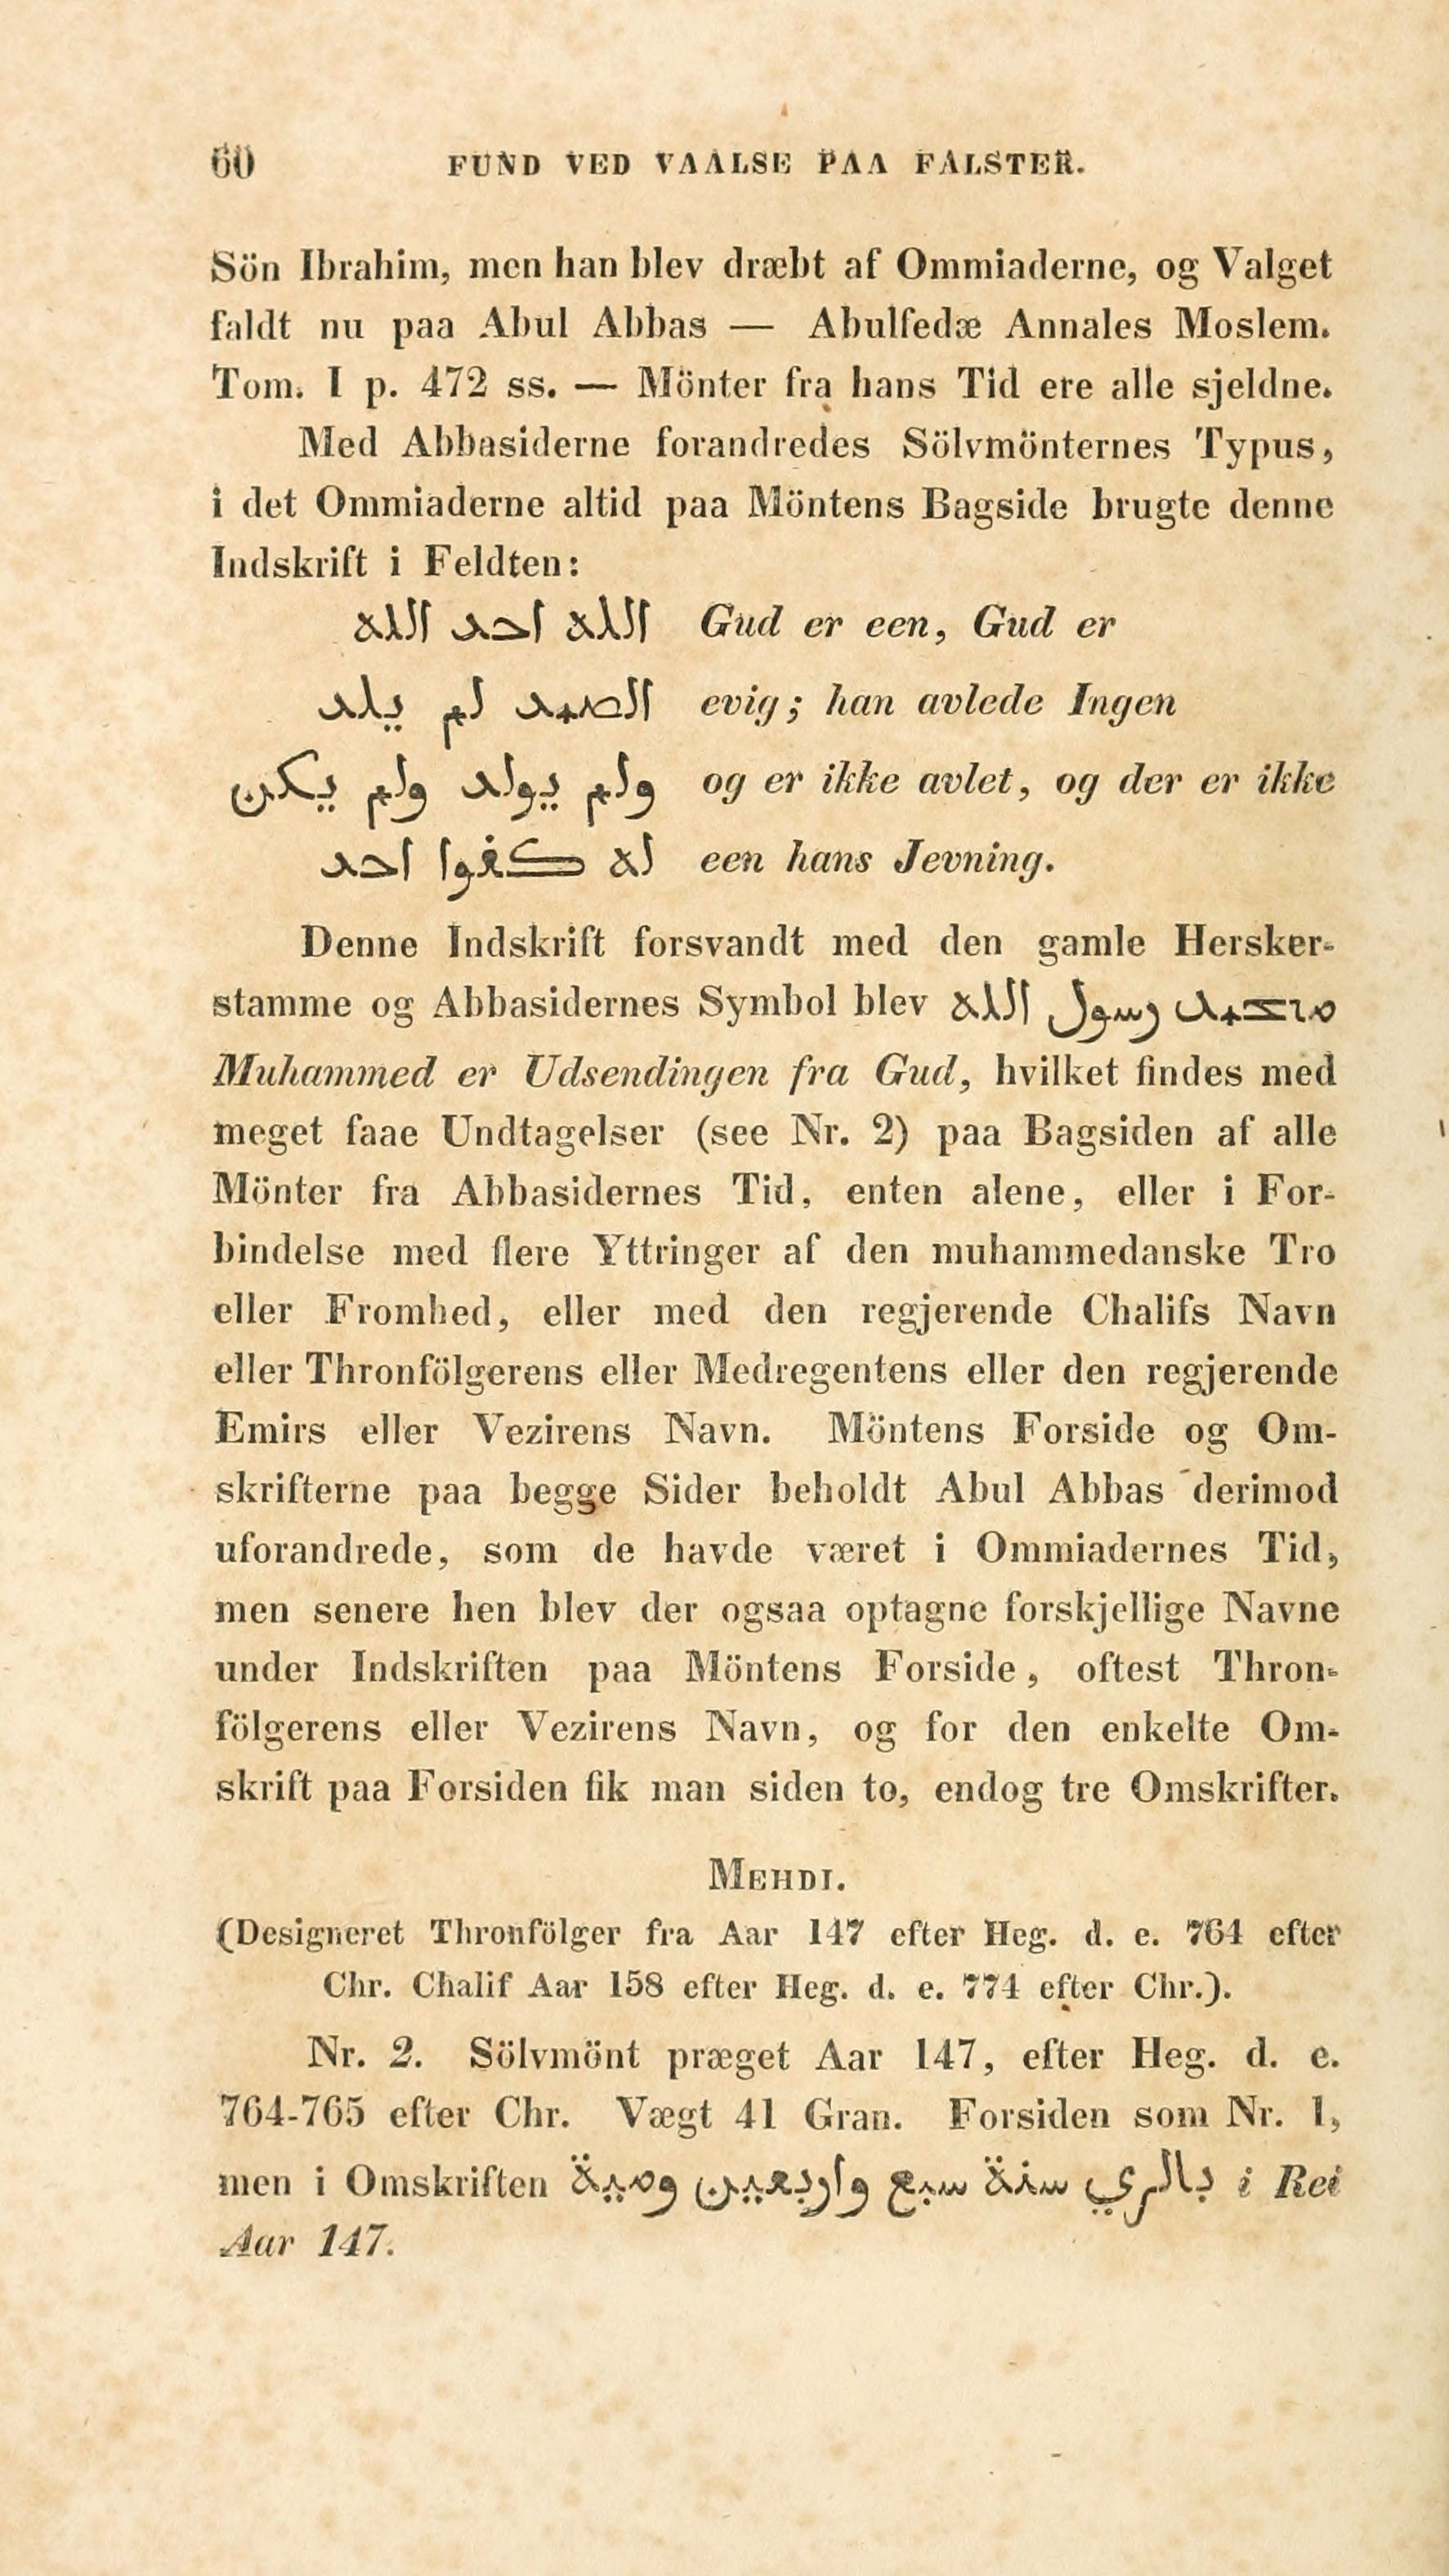 60 FUND VED VAALSE PAA FALSTER.
Sön Ibrahim, men han blev dræbt af Ommiaderne, og Valget
faldt nu paa Abul Abbas — Abulfedæ Annales Moslem.
Tom. I p. 472 ss. — Mönter fra hans Tid ere alle sjeldne.
Med Abbasiderne forandredes Sölvmönternes Typus,
i det Ommiaderne altid paa Möntens Bagside brugte denne
Indskrift i Feldten:
الله احد الله Gud er een, Gud er
الصمد لم يلد evig; han avlede Ingen
ولم يولد ولم يكن og er ikke avlet, og der er ikke
له كفوا احد een hans Jevning.
Denne Indskrift forsvandt med den gamle Hersker-
stamme og Abbasidernes Symbol blev محمد رسول الله
Muhammed er Udsendingen fra Gud, hvilket findes med
meget faae Undtagelser (see Nr. 2) paa Bagsiden af alle
Mönter fra Abbasidernes Tid, enten alene, eller i For-
bindelse med flere Yttringer af den muhammedanske Tro
eller Fromhed, eller med den regjerende Chalifs Navn
eller Thronfölgerens eller Medregentens eller den regjerende
Emirs eller Vezirens Navn. Möntens Forside og Om-
skrifterne paa begge Sider beholdt Abul Abbas derimod
uforandrede, som de havde været i Ommiadernes Tid,
men senere hen blev der ogsaa optagne forskjellige Navne
under Indskriften paa Möntens Forside, oftest Thron-
fölgerens eller Vezirens Navn, og for den enkelte Om-
skrift paa Forsiden fik man siden to, endog tre Omskrifter.
MEHDI.
(Designeret Thronfölger fra Aar 147 efter Heg. d. e. 764 efter
Chr. Chalif Aar 158 efter Heg. d. e. 774 efter Chr.).
Nr. 2. Sölvmönt præget Aar 147, efter Heg. d. e.
764-765 efter Chr. Vægt 41 Gran. Forsiden som Nr. 1,
men i Omskriften بالري سنة سبع واربعين ومية i Rei
Aar 147.